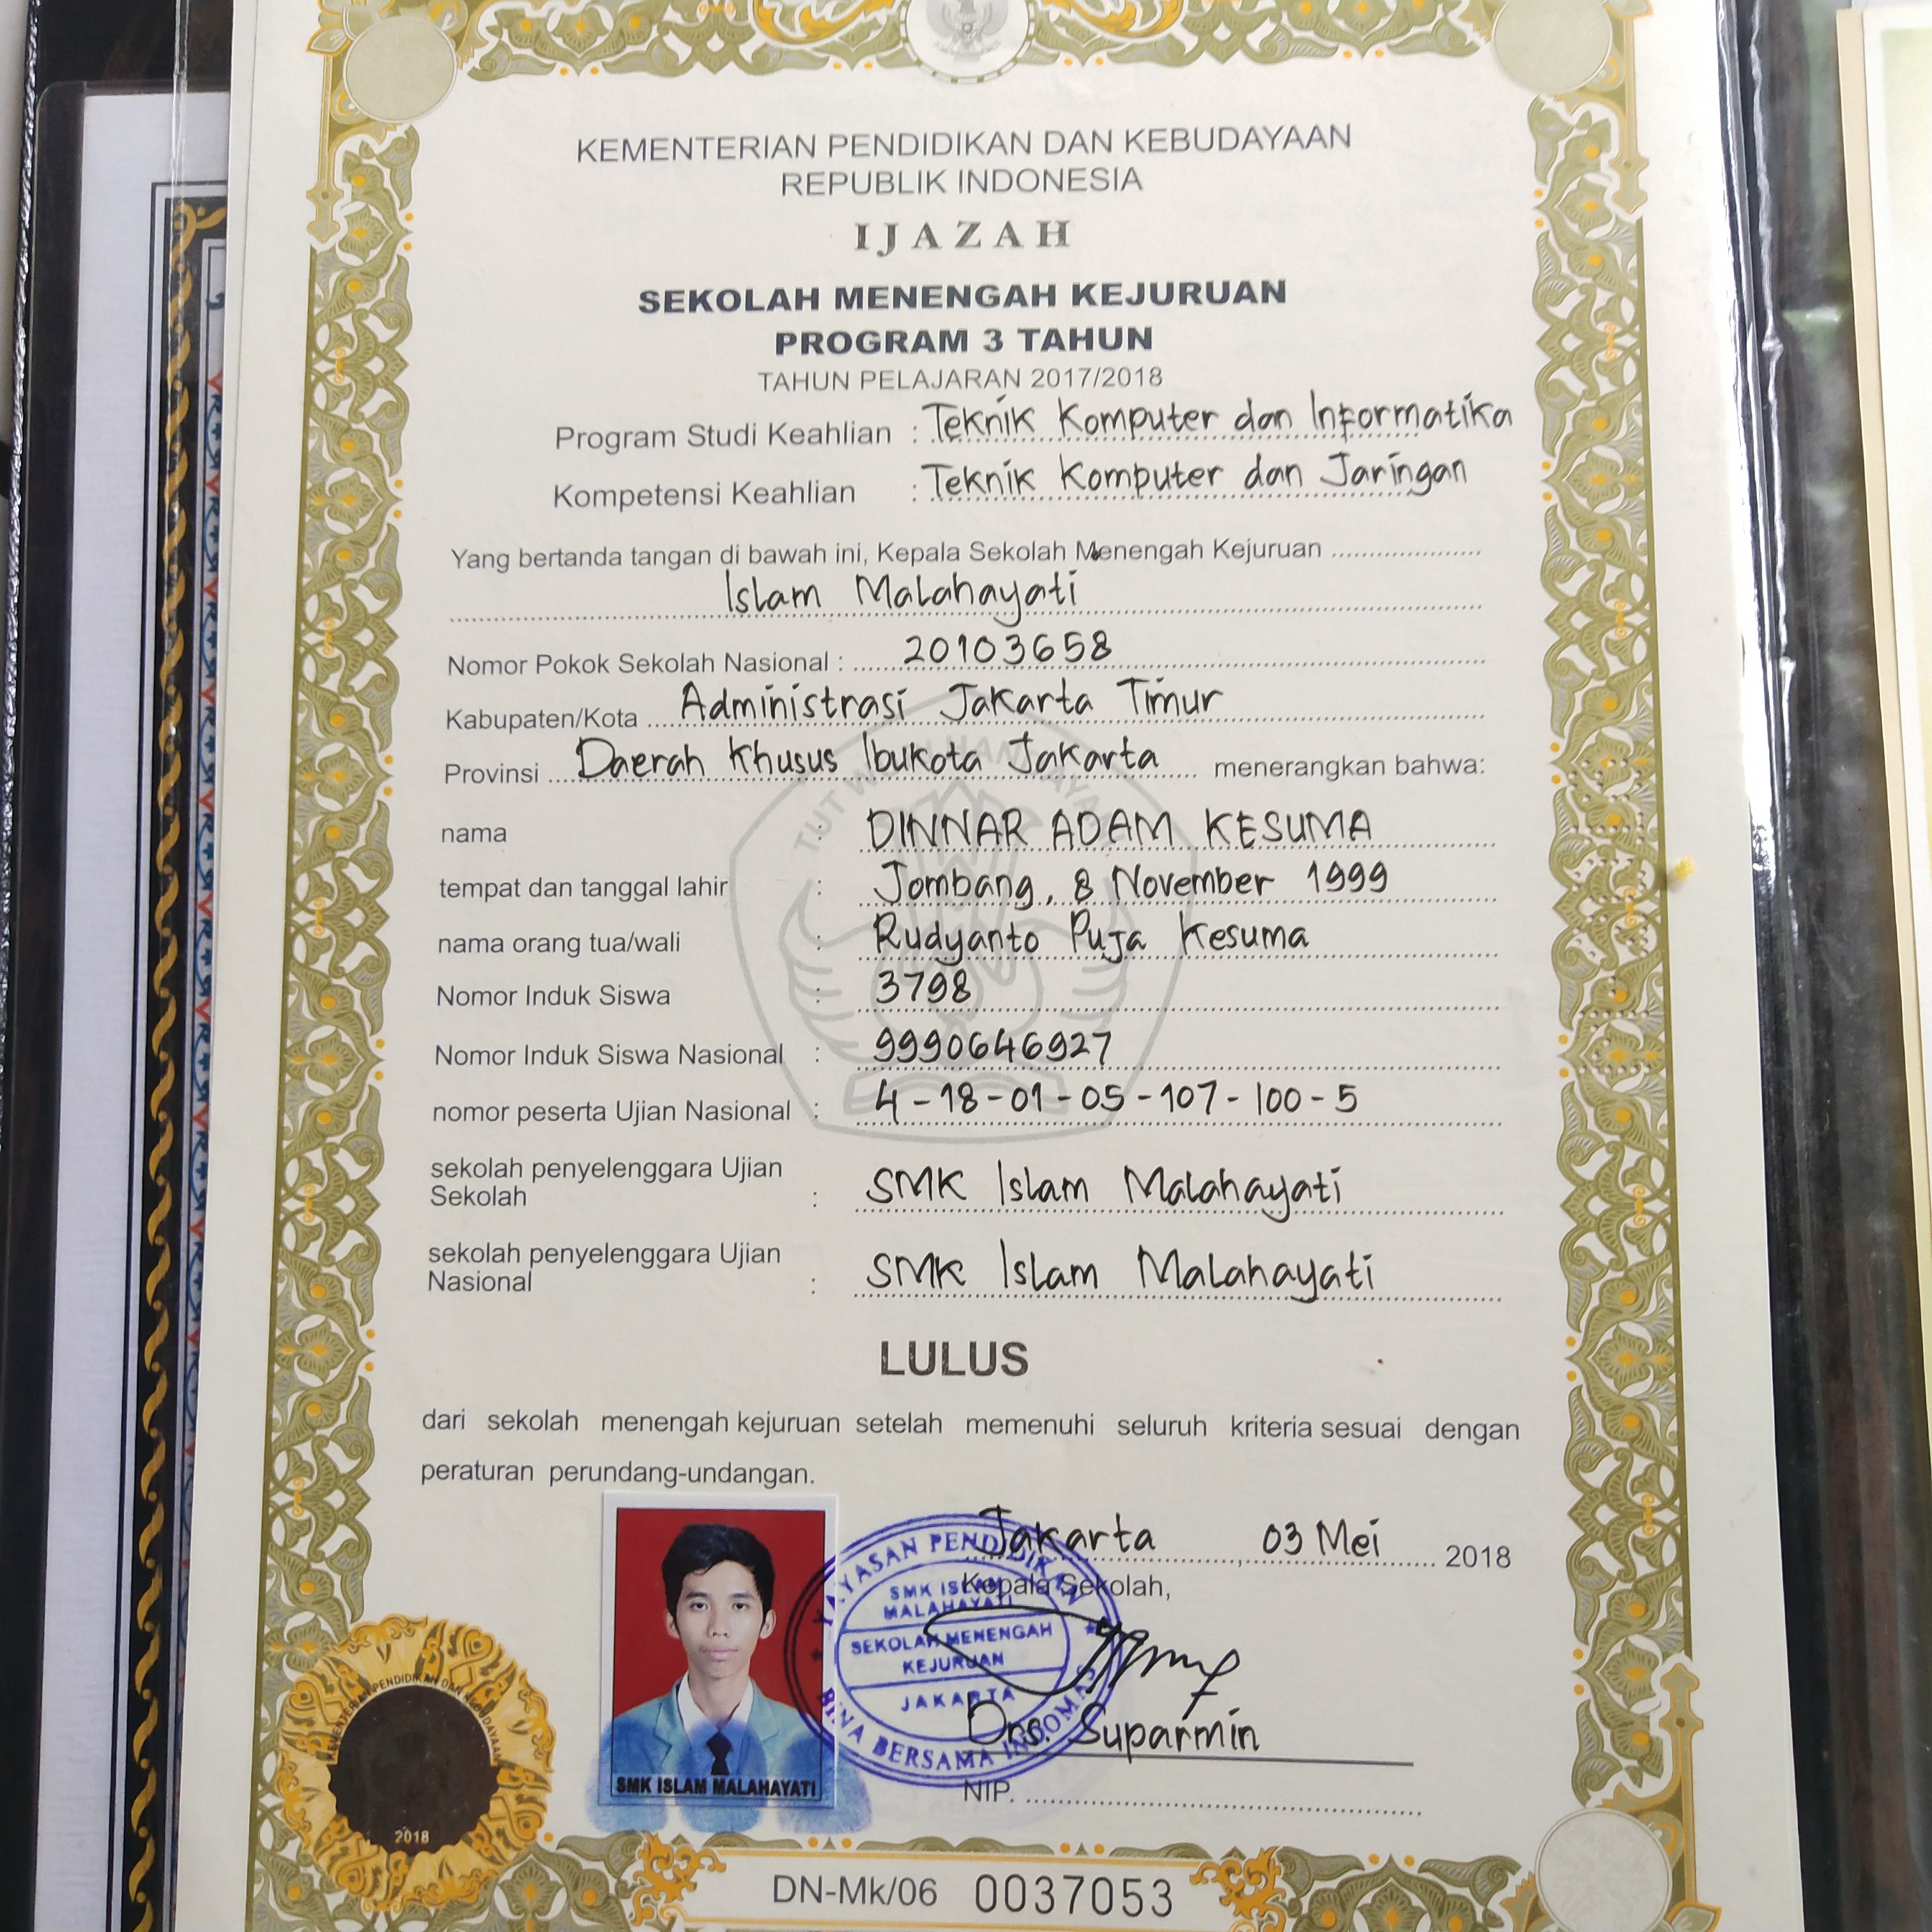 KEMENTERIAN PENDIDIKAN DAN KEBUDAYAAN
REPUBLIK INDONESIA
IJAZAH
SEKOLAH MENENGAH KEJURUAN
PROGRAM 3 TAHUN
TAHUN PELAJARAN 2017/2018
Program Studi Keahlian : Teknik Komputer dan Informatika
Kompetensi Keahlian : Teknik Komputer dan Jaringan
Yang bertanda tangan di bawah ini, Kepala Sekolah Menengah Kejuruan
Islam Malahayati
Nomor Pokok Sekolah Nasional : 20103658
Kabupaten/Kota Administrasi Jakarta Timur
Provinsi Daerah Khusus Ibukota Jakarta menerangkan bahwa:
nama : DINNAR ADAM KESUMA
tempat dan tanggal lahir : Jombang, 8 November 1999
nama orang tua/wali : Rudyanto Puja Kesuma
Nomor Induk Siswa : 3798
Nomor Induk Siswa Nasional : 9990646927
nomor peserta Ujian Nasional : 4-18-01-05-107-100-5
sekolah penyelenggara Ujian
Sekolah : SMK Islam Malahayati
sekolah penyelenggara Ujian
Nasional : SMK Islam Malahayati
LULUS
dari sekolah menengah kejuruan setelah memenuhi seluruh kriteria sesuai dengan
peraturan perundang-undangan.
Jakarta, 03 Mei 2018
Kepala Sekolah,
YAYASAN PENDIDIKAN
SMK ISLAM
MALAHAYATI
SEKOLAH MENENGAH
KEJURUAN
JAKARTA
BINA BERSAMA INDOMAS
Drs. Suparmin
NIP.
SMK ISLAM MALAHAYATI
KEMENTERIAN PENDIDIKAN DAN KEBUDAYAAN
2018
DN-Mk/06 0037053